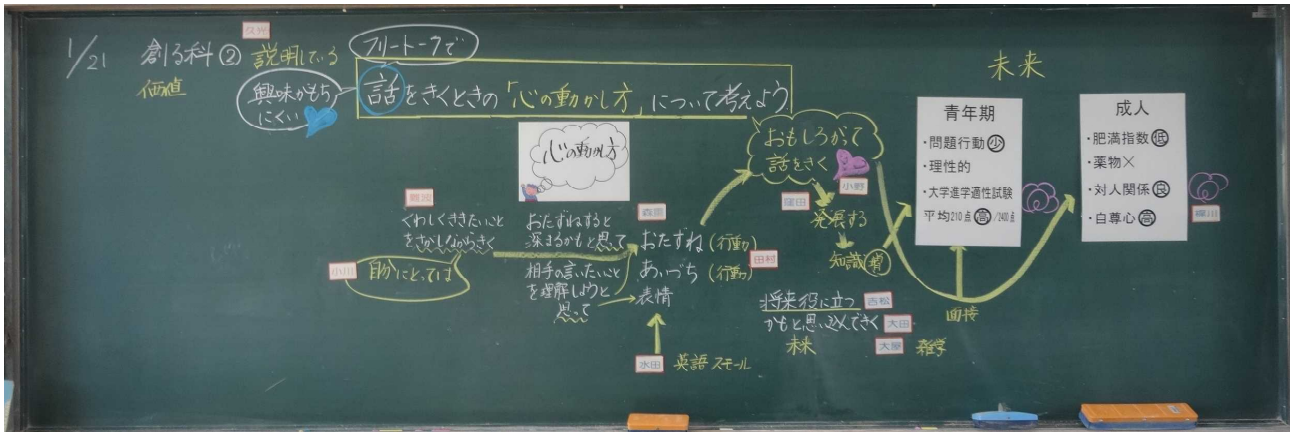 1/21
創る科②
説明している
価値
フリートークで
興味がもち
にくい
話をきくときの「心の動かし方」について考えよう
心の動かし方
くわしくききたいこと
をさがしながらきく
小川
自分にとっては
おたずねすると
深まるかもと思って
相手の言いたいこと
を理解しようと
思って
おたずね(行動)
あいづち(行動)
表情
田村
水田
英語スモール
おもしろがって
話をきく
小野
窪田
発展する
知識増
将来役に立つ
かもと思い込んできく
未来
吉松
大田
雑学
面接
未来
青年期
・問題行動少
・理性的
・大学進学適性試験
平均210点高/2400点
成人
・肥満指数低
・薬物×
・対人関係良
・自尊心高